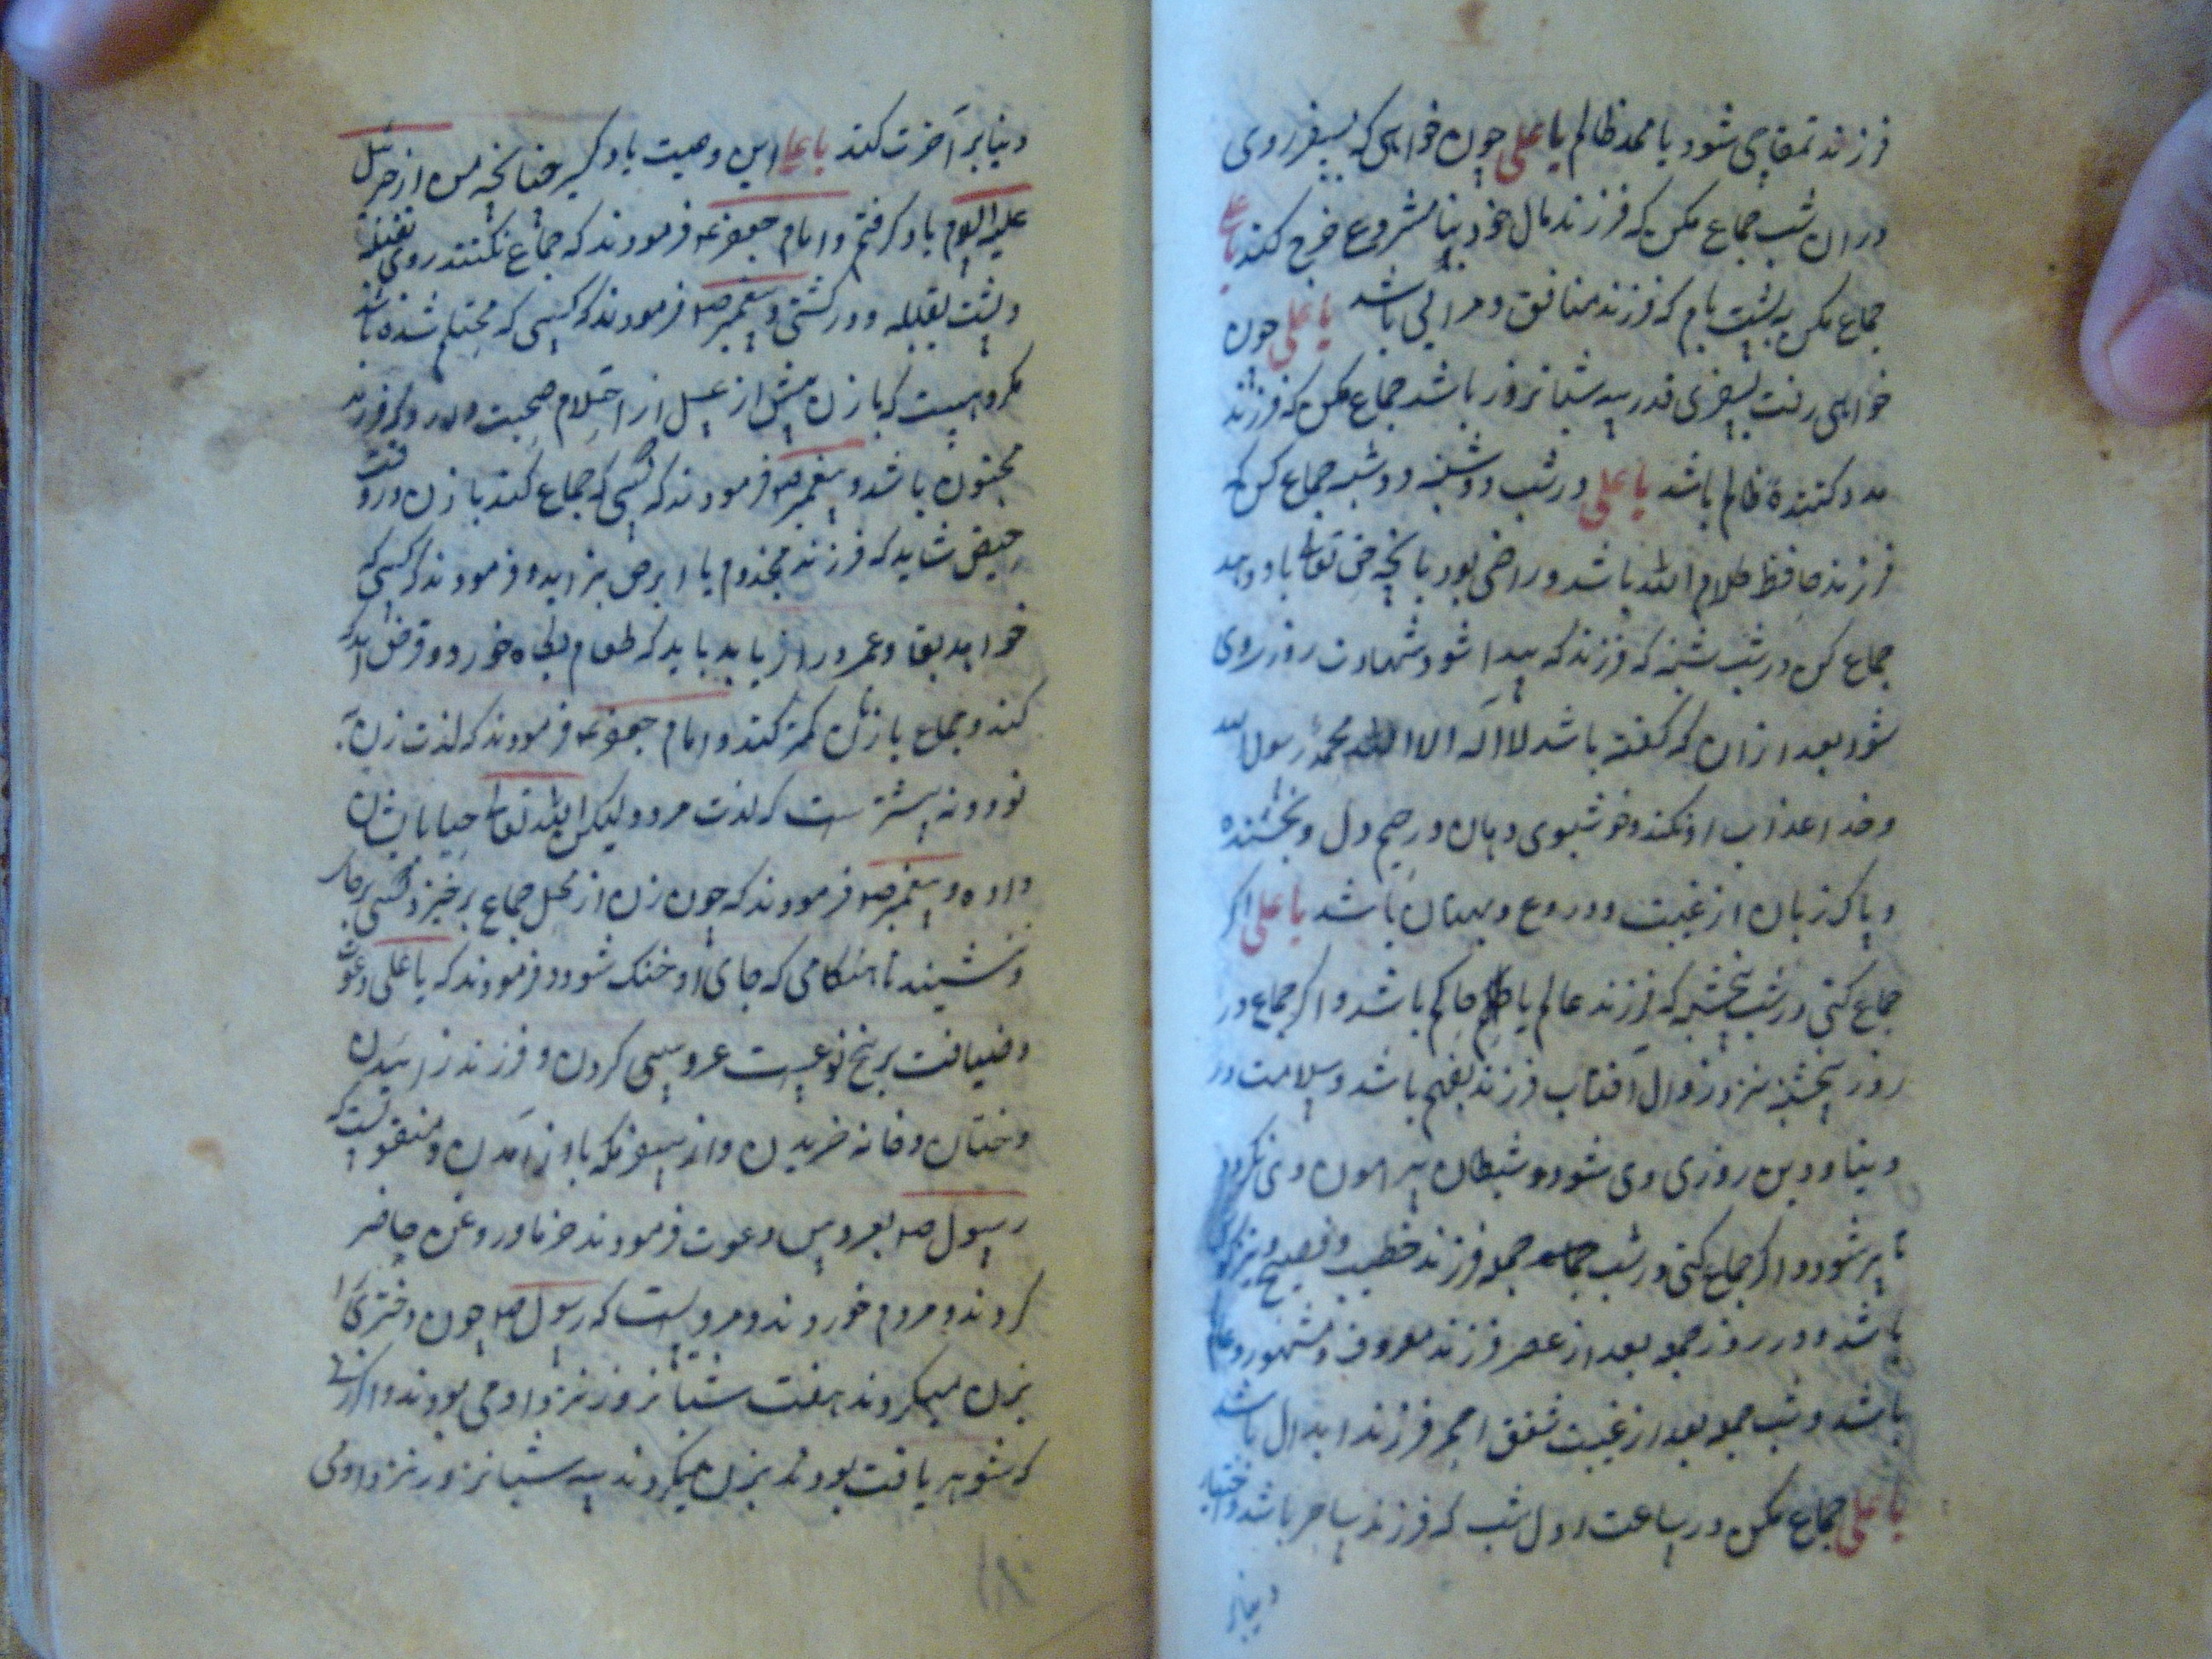 فرزند تمقاچی شود یا ممد ظالم یا علی چون خواهی که بسفر روی
در ان شب جماع مکن که فرزند مال خود بنا مشروع خرج کند یا علی
جماع مکن به پشت بام که فرزند منافق و مرائی باشد یا علی چون
خواهی رفت بسفری قدر سه شبانروز باشد جماع مکن که فرزند
مدد کننده ظالم باشد یا علی در شب دوشنبه جماع کن که
فرزند حافظ کلام الله باشد و راضی بود بانچه حق تعالی باو دهد
جماع کن در شب شنبه که فرزند که پیدا شود شهادت روزی وی
شود بعد از ان که گفته باشد لا اله الا الله محمد رسول الله
و خدا عذاب او نکند و خوشبوی دهان و رحیم دل و بخشنده
و پاک زبان از غیبت و دروغ و بهتان باشد یا علی اکر
جماع کنی در شب پنجشنبه که فرزند عالم یا حاکم باشد و اکر جماع در
روز پنجشنبه نزد زوال آفتاب فرزند باشد و سلامت در
دنیا و دین روزی وی شود و شیطان پیرامون وی نکردد
تا پیر شود و اکر جماع کنی در شب جمعه فرزند خطیب و فصیح
باشد و در روز جمعه بعد از عصر فرزند معروف و مشهور و عالم
باشد و شب جمعه بعد از غیبت شفق احمر فرزند ابدال باشد
یا علی جماع مکن در ساعت اول شب که فرزند ساحر باشد و اختیار
دنیا بر
دنیا بر آخرت کند یا علی این وصیت یاد کیر چنانچه من از جبرئیل
علیه السلام یاد کرفتم و امام جعفر فرمودند که جماع نکنند روی بقبله
و پشت بقبله و در کشتی و پیغمبر ص فرمودند که کسی که محتلم شده باشد
مکروهست که با زن پیش از غسل از احتلام صحبت دارد و اکر فرزند
مجنون باشد و پیغمبر ص فرمودند که کسی که جماع کند با زن در وقت
حیض شاید که فرزند مجذوم یا ابرص بزاید و فرمودند که کسی که
خواهد بقا و عمر دراز یابد باید که طعام بکاه خورد و قرض
کند و جماع با زنان کمتر کند و امام جعفر فرمودند که لذت زن
نود و نه بیشتر است که لذت مرد و لیکن الله تعالی حیا بایشان
داده و پیغمبر ص فرمودند که چون زن از محل جماع برخیزد کسی بر جای
ننشیند تا هنکامی که جای او خنک شود و فرمودند که یا علی دعوت
و ضیافت بر پنج نوعست عروسی کردن و فرزند زائیدن
و ختان و خانه خریدن و از سفر مکه باز آمدن و منقولست که
رسول ص بعروسی دعوت فرمودند خرما و روغن حاضر
کردند و مردم خوردند و مرویست که رسول ص چون دختری را
بزن میکردند هفت شبانروز نزد او می بودند و اکر زنی
که شوهر یافت بودند بزن میکردند سه شبانروز نزد او می